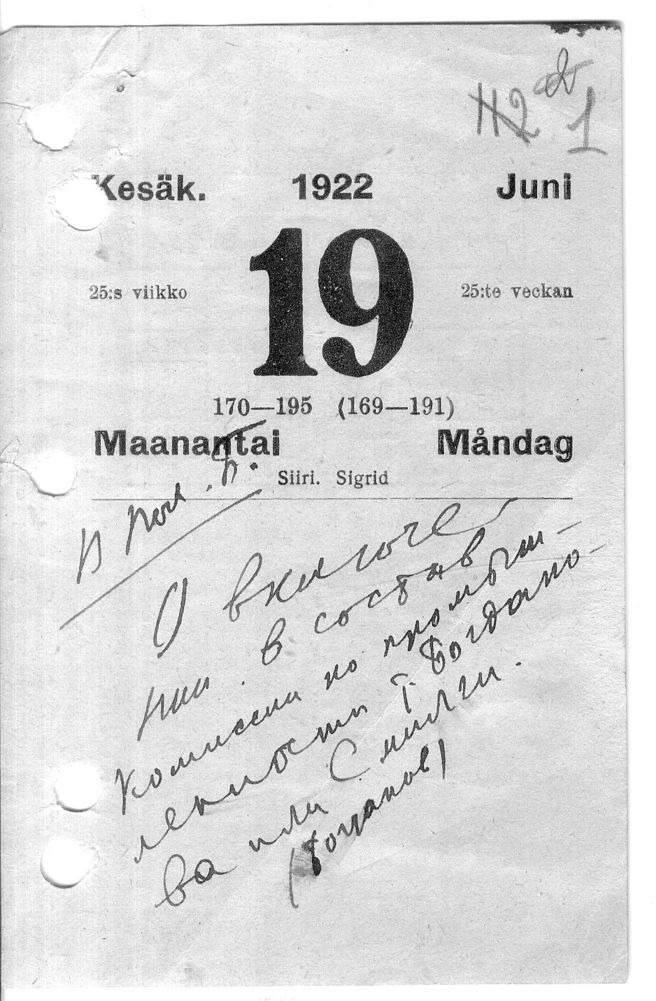 Kesäk. 1922 Juni
19
25:s viikko 25:te veckan
170—195 (169—191)
Maanantai Måndag
Siiri. Sigrid
О включе-
нии в состав
Комиссии по промыш-
ленности т. Богдано-
ва или Смилги.
(Богданов)